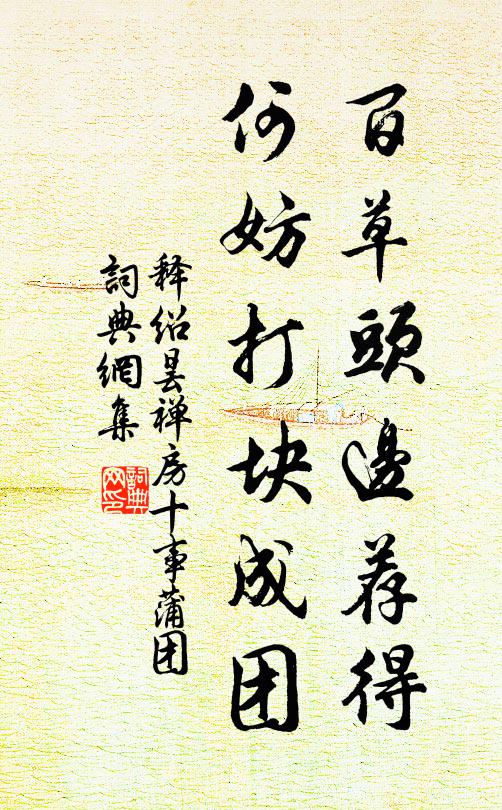 百草頭邊荐得
何妨打块成团
释绍昙禅房十事蒲团
詞典網集
詞典
网印